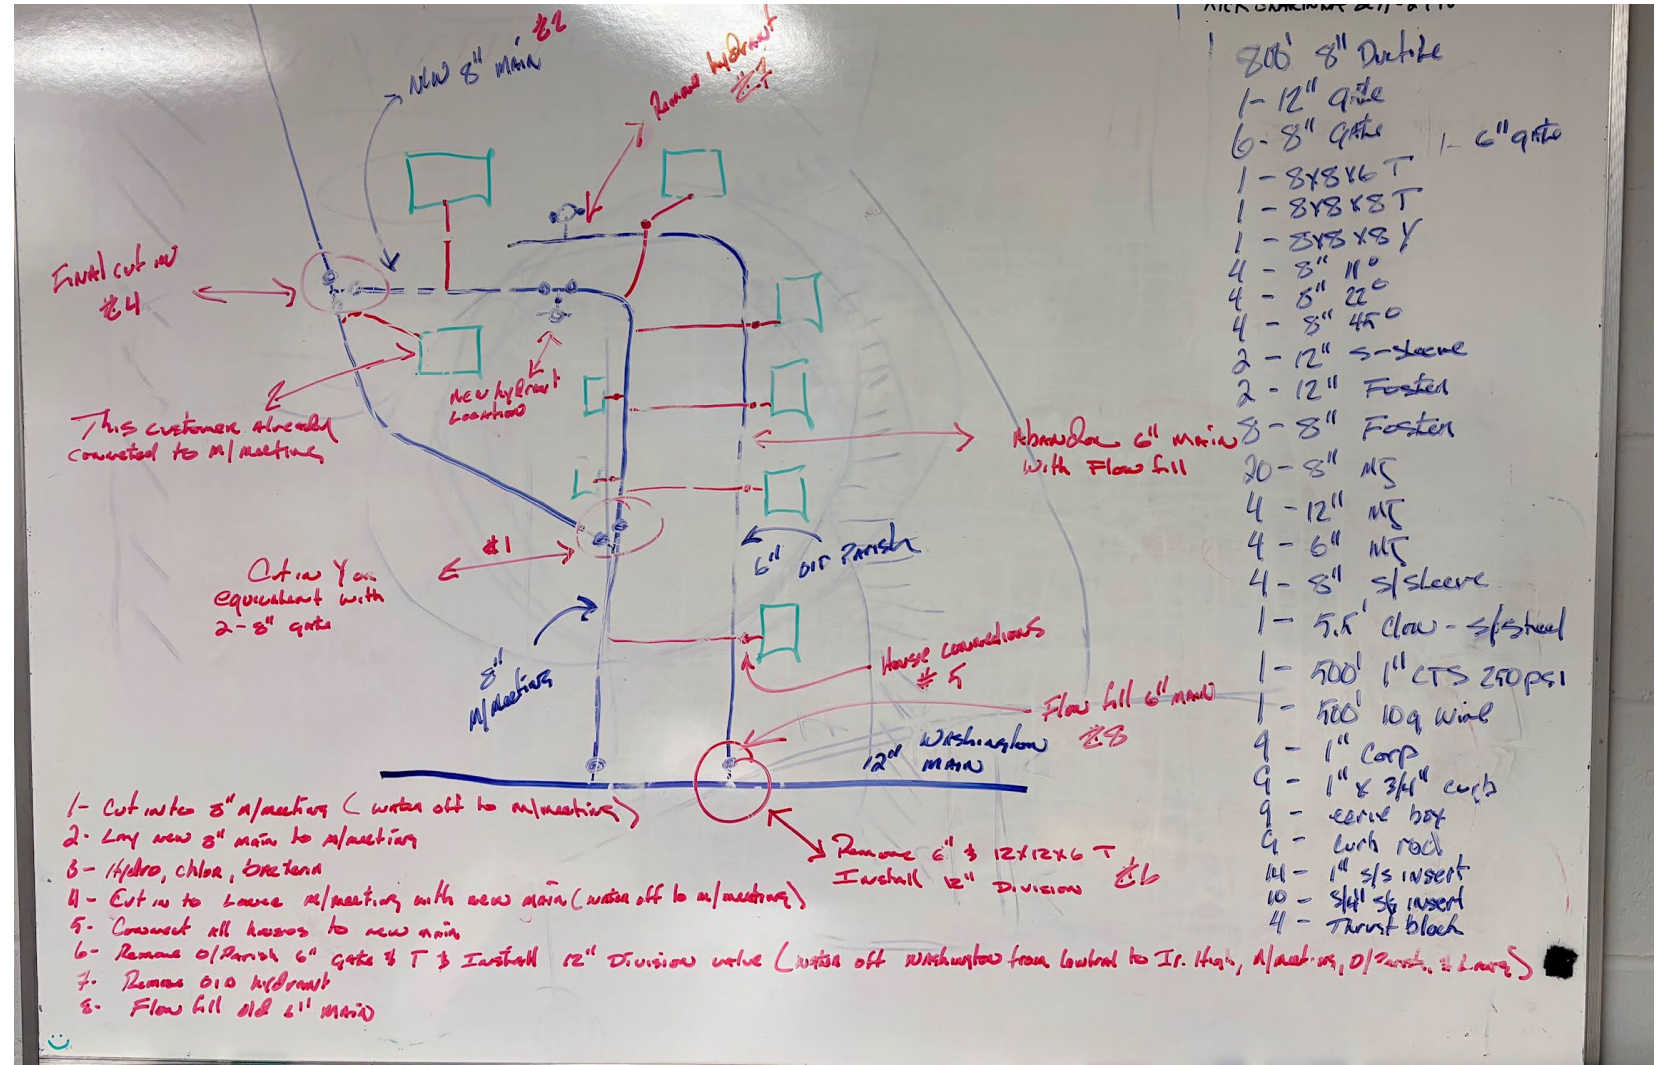 NEW 8" MAIN #2
Remove hydrant
#7
FINAL cut in
#4
This customer Already
connected to M/meeting
NEW hydrant
LOCATION
Abandon 6" MAIN
with Flow fill
#1
Cut in Y or
equivalent with
2-8" gate
6" OLD PARISH
8"
M/Meeting
House connections
#5
Flow fill 6" MAIN
#8
12" WAShington
MAIN
Remove 6" & 12x12x6 T
Install 12" Division #6
1- Cut into 8" M/meeting (water off to m/meeting)
2- Lay new 8" main to M/meeting
3- Hydro, chlor, bacteria
4- Cut in to M/meeting with new main (water off to m/meeting)
5- Connect all houses to new main
6- Remove O/Parish 6" gate & T & Install 12" Division valve (water off Washington from Central to Jr. High, M/meeting, O/Parish, &
7- Remove OLD hydrant
8- Flow fill old 6" MAIN
800' 8" Ductile
1- 12" gate
6- 8" gate 1- 6" gate
1- 8x8x6 T
1- 8x8x8 T
1- 8x8x8 Y
4- 8" 11°
4- 8" 22°
4- 8" 45°
2- 12" s-sleeve
2- 12" Foster
8- 8" Foster
20- 8" MJ
4- 12" MJ
4- 6" MJ
4- 8" s/sleeve
1- 5.5' Clow - S/Steel
1- 500' 1" CTS 250psi
1- 500' 10g wire
9- 1" Corp
9- 1" x 3/4" curb
9- box
9- curb rod
14- 1" s/s insert
10- 3/4" s/s insert
4- Thrust block